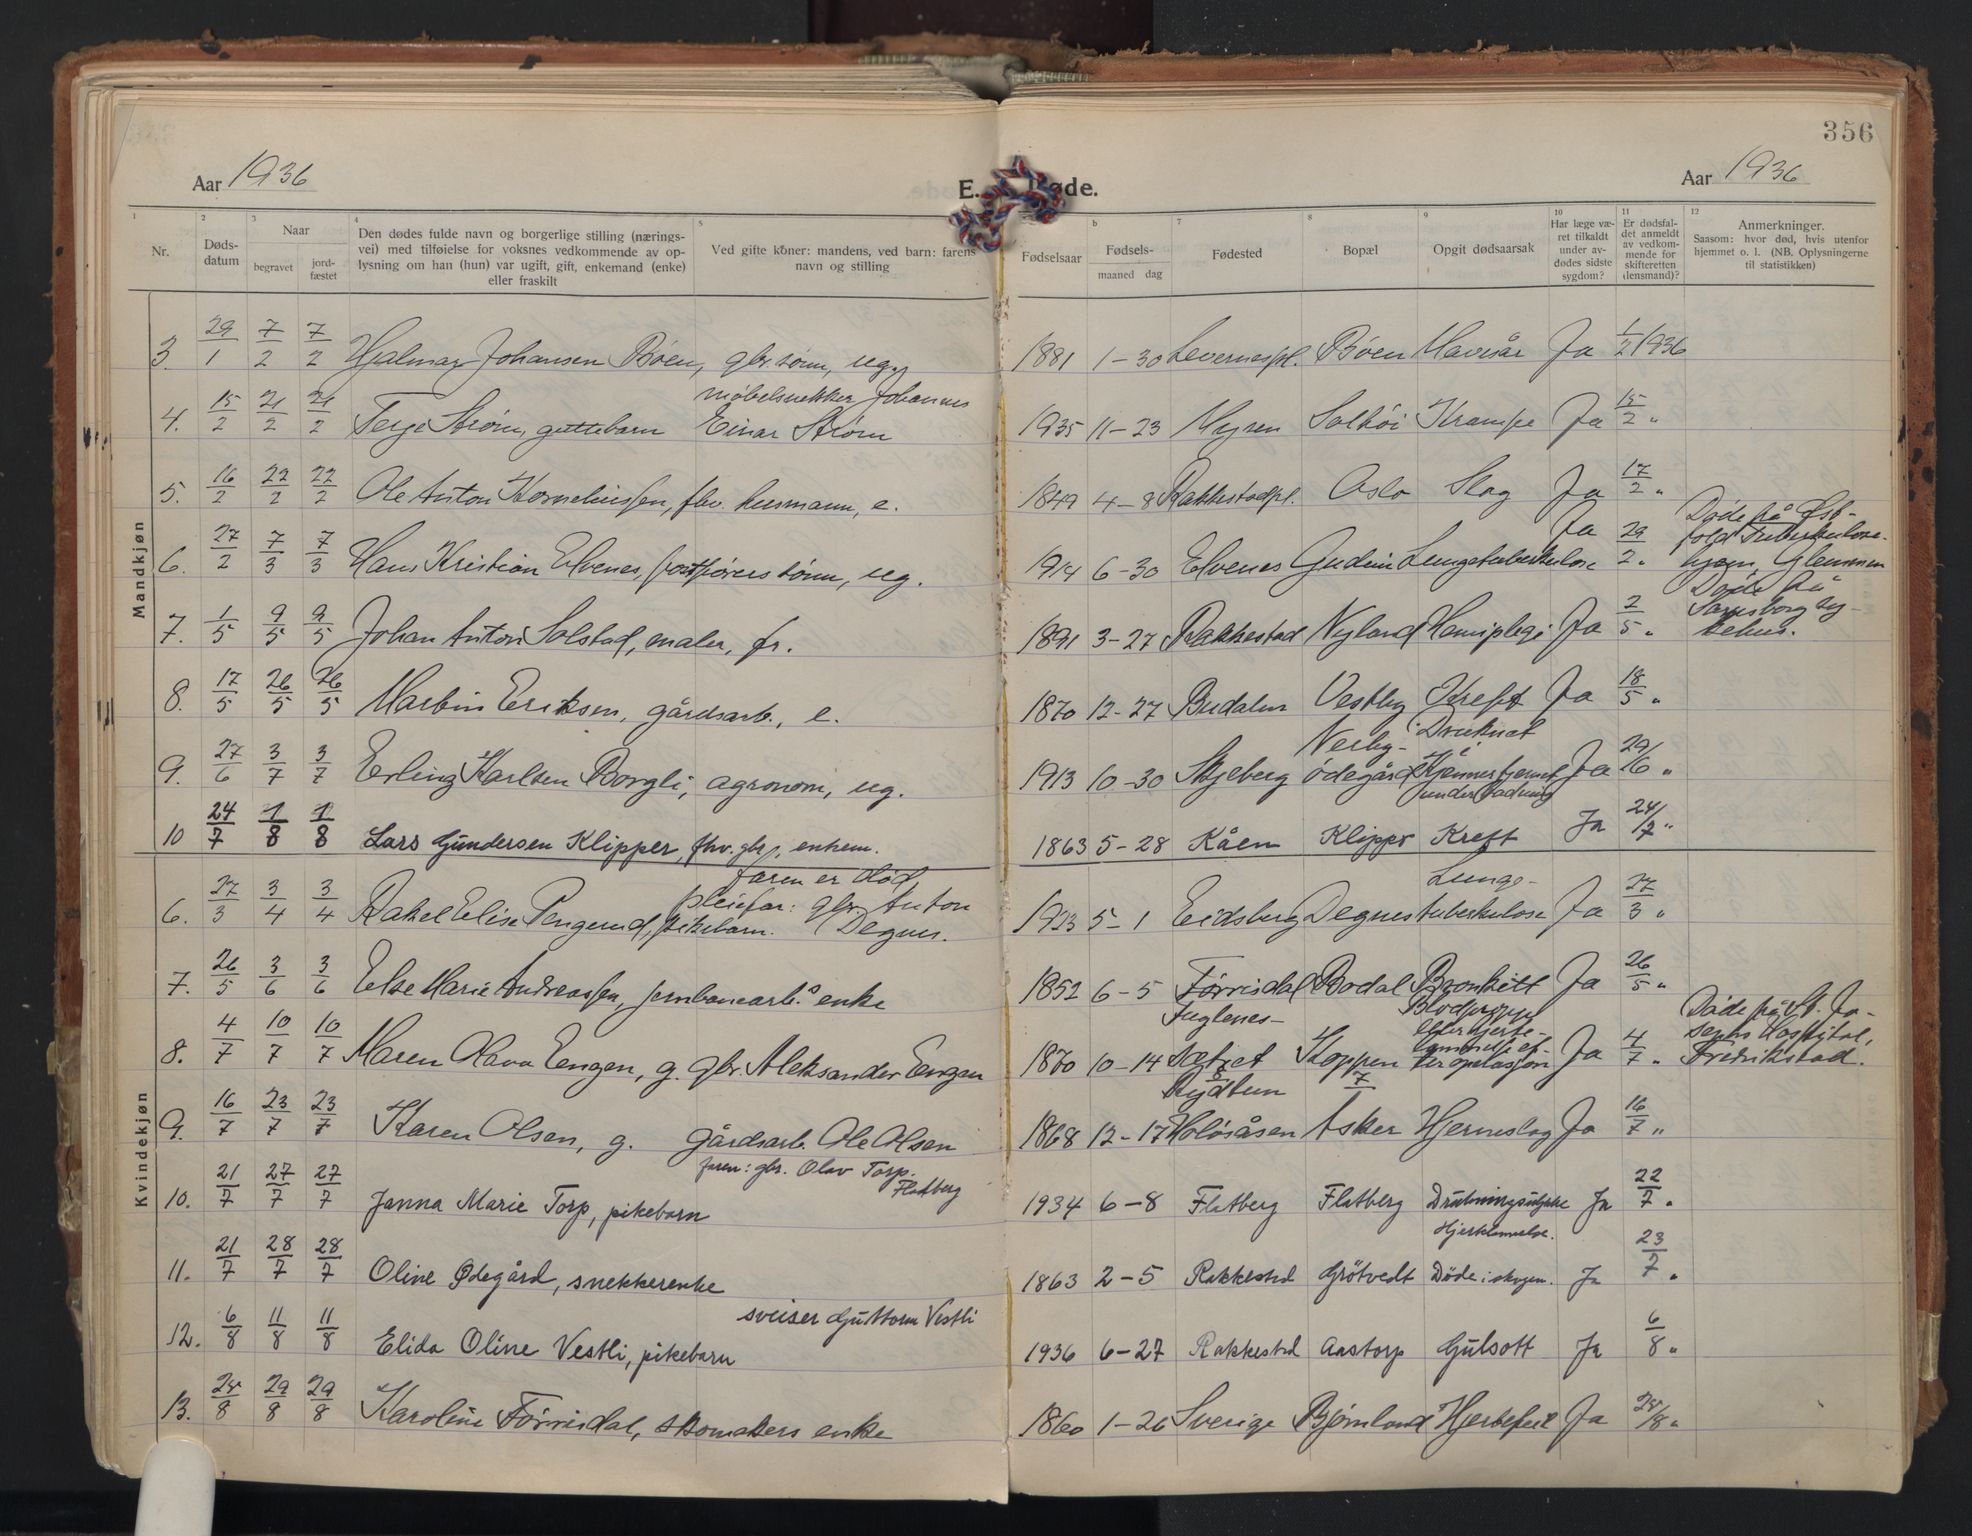 356
Aar 1936
E. Døde.
Aar 1936
1 2 3 4 5 6 7 8 9 10 11 12
Nr.
Døds-
datum
Naar
begravet
jord-
fæstet
Den dødes fulde navn og borgerlige stilling (nærings-
vei) med tilføielse for voksnes vedkommende av op-
lysning om han (hun) var ugift, gift, enkemand (enke)
eller fraskilt
Ved gifte koner: mandens, ved barn: farens
navn og stilling
Fødselsaar
Fødsels-
maaned dag
Fødested
Bopæl
Opgit dødsaarsak
Har læge væ-
ret tilkaldt
under av-
dødes sidste
sygdom?
Er dødsfal-
det anmeldt
av vedkom-
mende for
skifteretten
(lensmand)?
Anmerkninger.
Saasom: hvor død, hvis utenfor
hjemmet o. l. (NB. Oplysningerne
til statistikken)
Mandkjøn
3 29/1 7/2 7/2 Hjalmar Johansen Bøen, gbr. sønn, ug. 1881 1-30 Levernespl. Bøen Mavesår Ja 1/2 1936
møbelsnekker Johannes
4. 15/2 21/2 21/2 Terje Strøm, guttebarn Einar Strøm 1935 11-23 Myren Solhøi Krampe Ja 15/2 "
5. 16/2 22/2 22/2 Ole Anton Korneliussen, fhv. husmann, e. 1849 4-8 Rakkestadpl. Oslo Slag Ja 17/2 "
6. 27/2 7/3 7/3 Hans Kristian Elvenes, postførers sønn, ug. 1914 6-30 Elvenes Gudim Lungetuberkulose Ja 29/2 "
Døde på Øst-
fold Tuberkulose-
hjem, Glemmen
7. 1/5 9/5 9/5 Johan Anton Solstad, maler, fr. 1891 3-27 Rakkestad Nyland Hemiplegi Ja 2/5 "
Døde på
Sarpsborg sy-
kehus.
8. 17/5 26/5 26/5 Martin Eriksen, gårdsarb., e. 1870 12-27 Budalen Vestby Kreft Ja 18/5 "
Nerby- Druknet
9. 27/6 3/7 3/7 Erling Karlsen Borgli, agronom, ug. 1913 10-30 Skjeberg ødegård i Kjennertjernet Ja 29/6 "
under badning
10 24/7 1/8 1/8 Lars Gundersen Klipper, fhv. gbr., enkem. 1863 5-28 Kåen Klipper Kreft Ja 24/7 "
Kvindekjøn
faren er død
pleiefar: gbr. Anton Lunge-
6. 27/3 3/4 4/4 Rakel Elise Pengerud, pikebarn. Degnes. 1923 5-1 Eidsberg Degnes tuberkulose Ja 27/3 "
7. 26/5 3/6 3/6 Else Marie Andreassen, jernbanearb.s enke 1852 6-5 Førrisdal Bodal Bronkitt Ja 26/5 "
Fuglenes- Blodpropp
8. 4/7 10/7 10/7 Maren Olava Engen, g. gbr. Aleksander Engen 1870 10-14 sætret Koppen Ja 4/7 "
Døde på St. Jo-
sephs Hospital,
Fredrikstad.
9. 16/7 23/7 23/7 Karen Olsen, g. gårdsarb. Ole Olsen 1868 12-17 Holøsåsen Asker Hjerneslag Ja 16/7 "
faren: gbr. Olav Torp.
Flatberg
10. 21/7 27/7 27/7 Janna Marie Torp, pikebarn 1934 6-8 Flatberg Flatberg Drukningsulykke Ja 22/7 "
Hjertelammelse.
11. 21/7 28/7 28/7 Oline Ødegård, snekkerenke 1863 2-5 Rakkestad Grøtvedt Døde i skogen. Ja 23/7 "
sveiser Guttorm Vestli
12. 6/8 11/8 11/8 Elida Oline Vestli, pikebarn 1936 6-27 Rakkestad Aastorp Gulsott Ja 6/8 "
13. 24/8 29/8 29/8 Karoline Førrisdal, skomakers enke 1860 1-26 Sverige Bjørnland Hjertefeil Ja 24/8 "